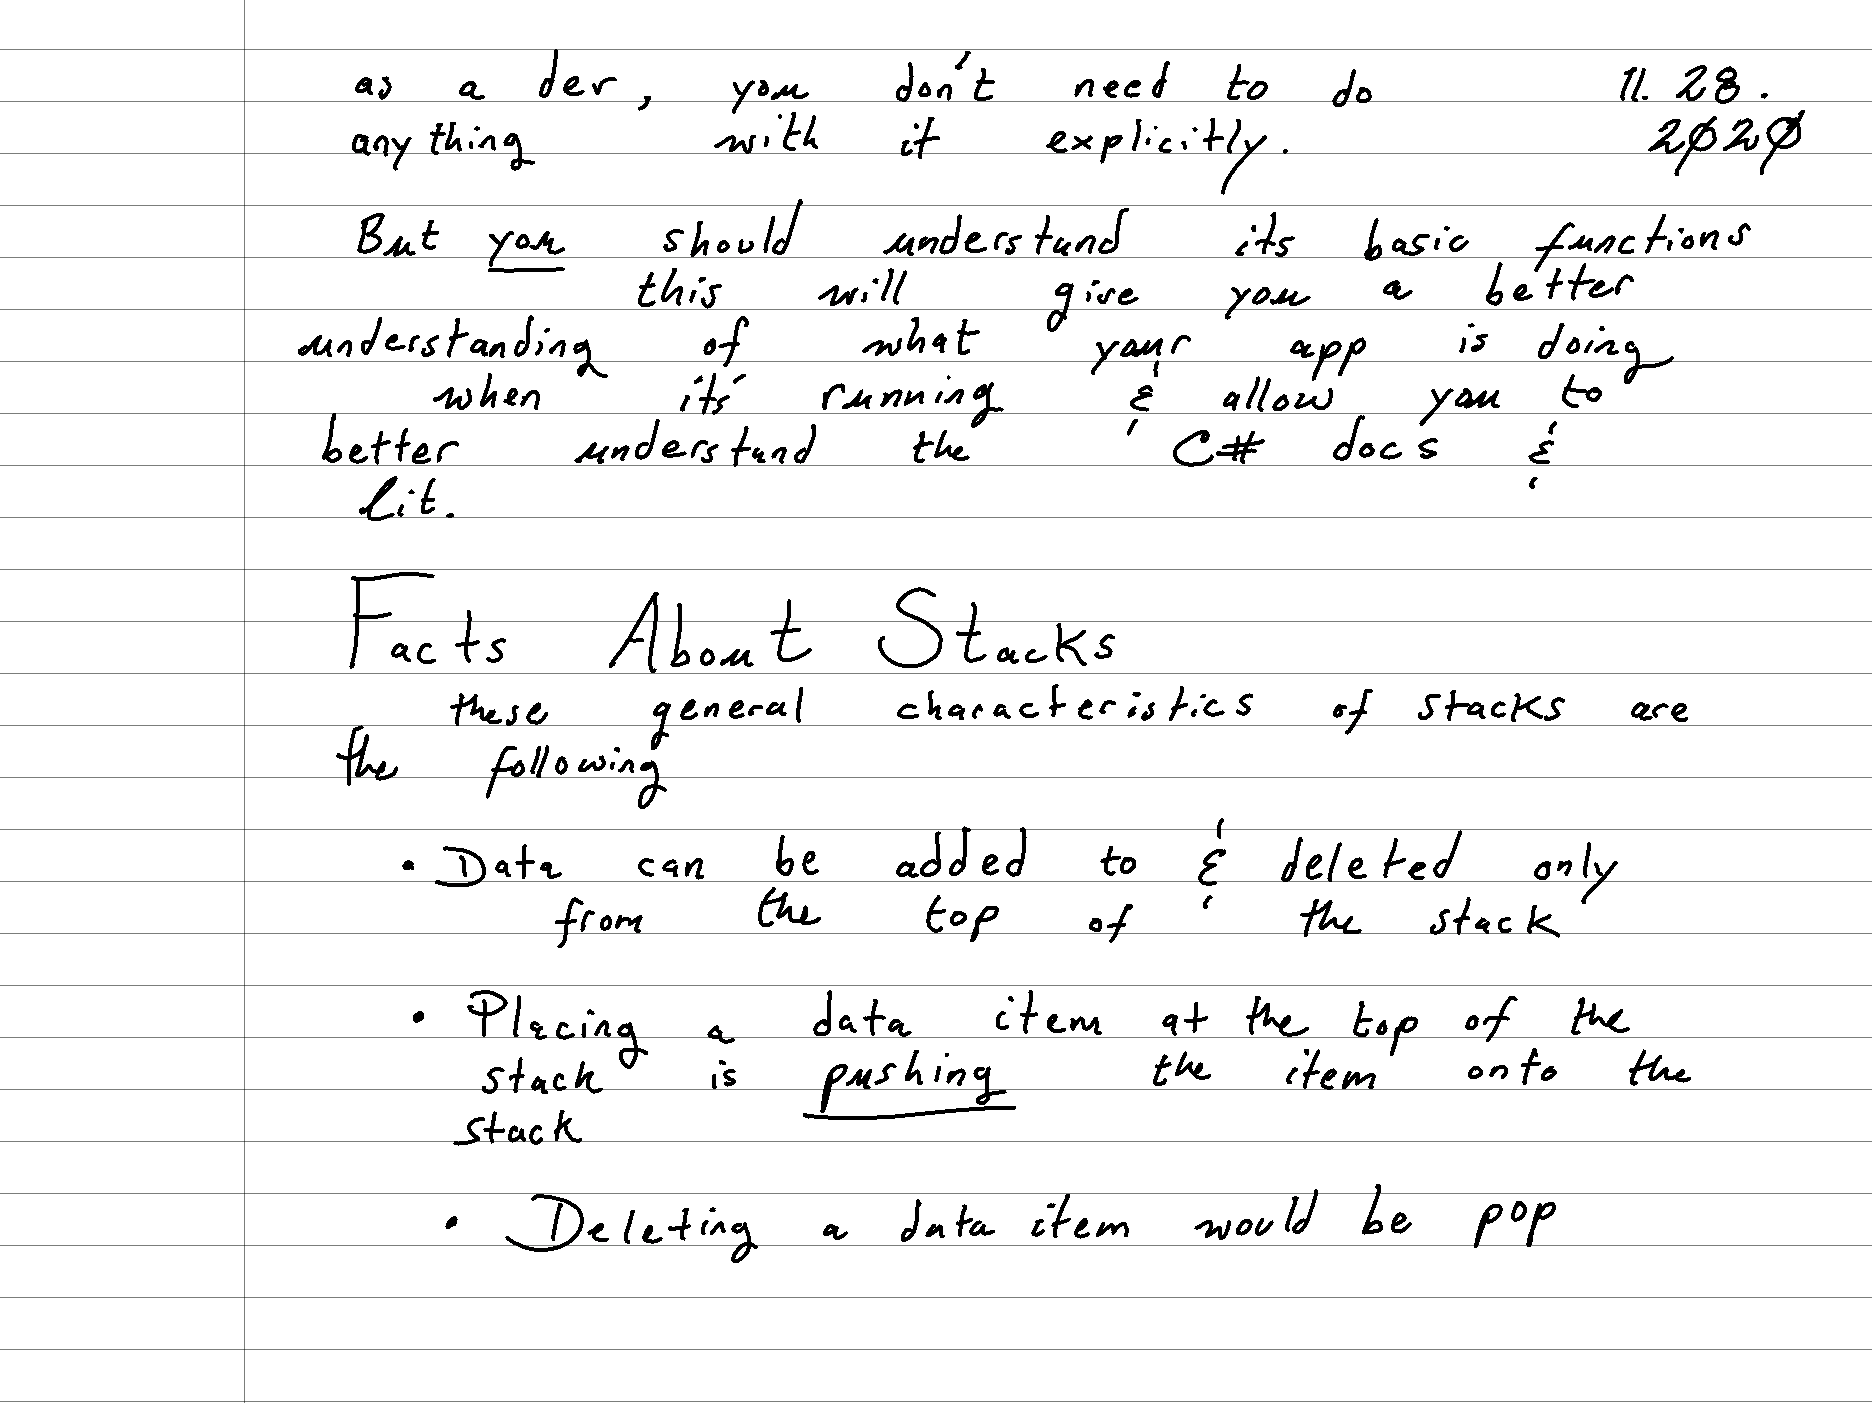 as a dev, you don't need to do 11.28.
anything with it explicitly. 2020
But you should understand its basic functions
this will give you a better
understanding of what your app is doing
when it's running & allow you to
better understand the C# docs &
lit.
Facts About Stacks
these general characteristics of stacks are
the following
• Data can be added to & deleted only
from the top of the stack
• Placing a data item at the top of the
stack is pushing the item onto the
stack
• Deleting a data item would be pop